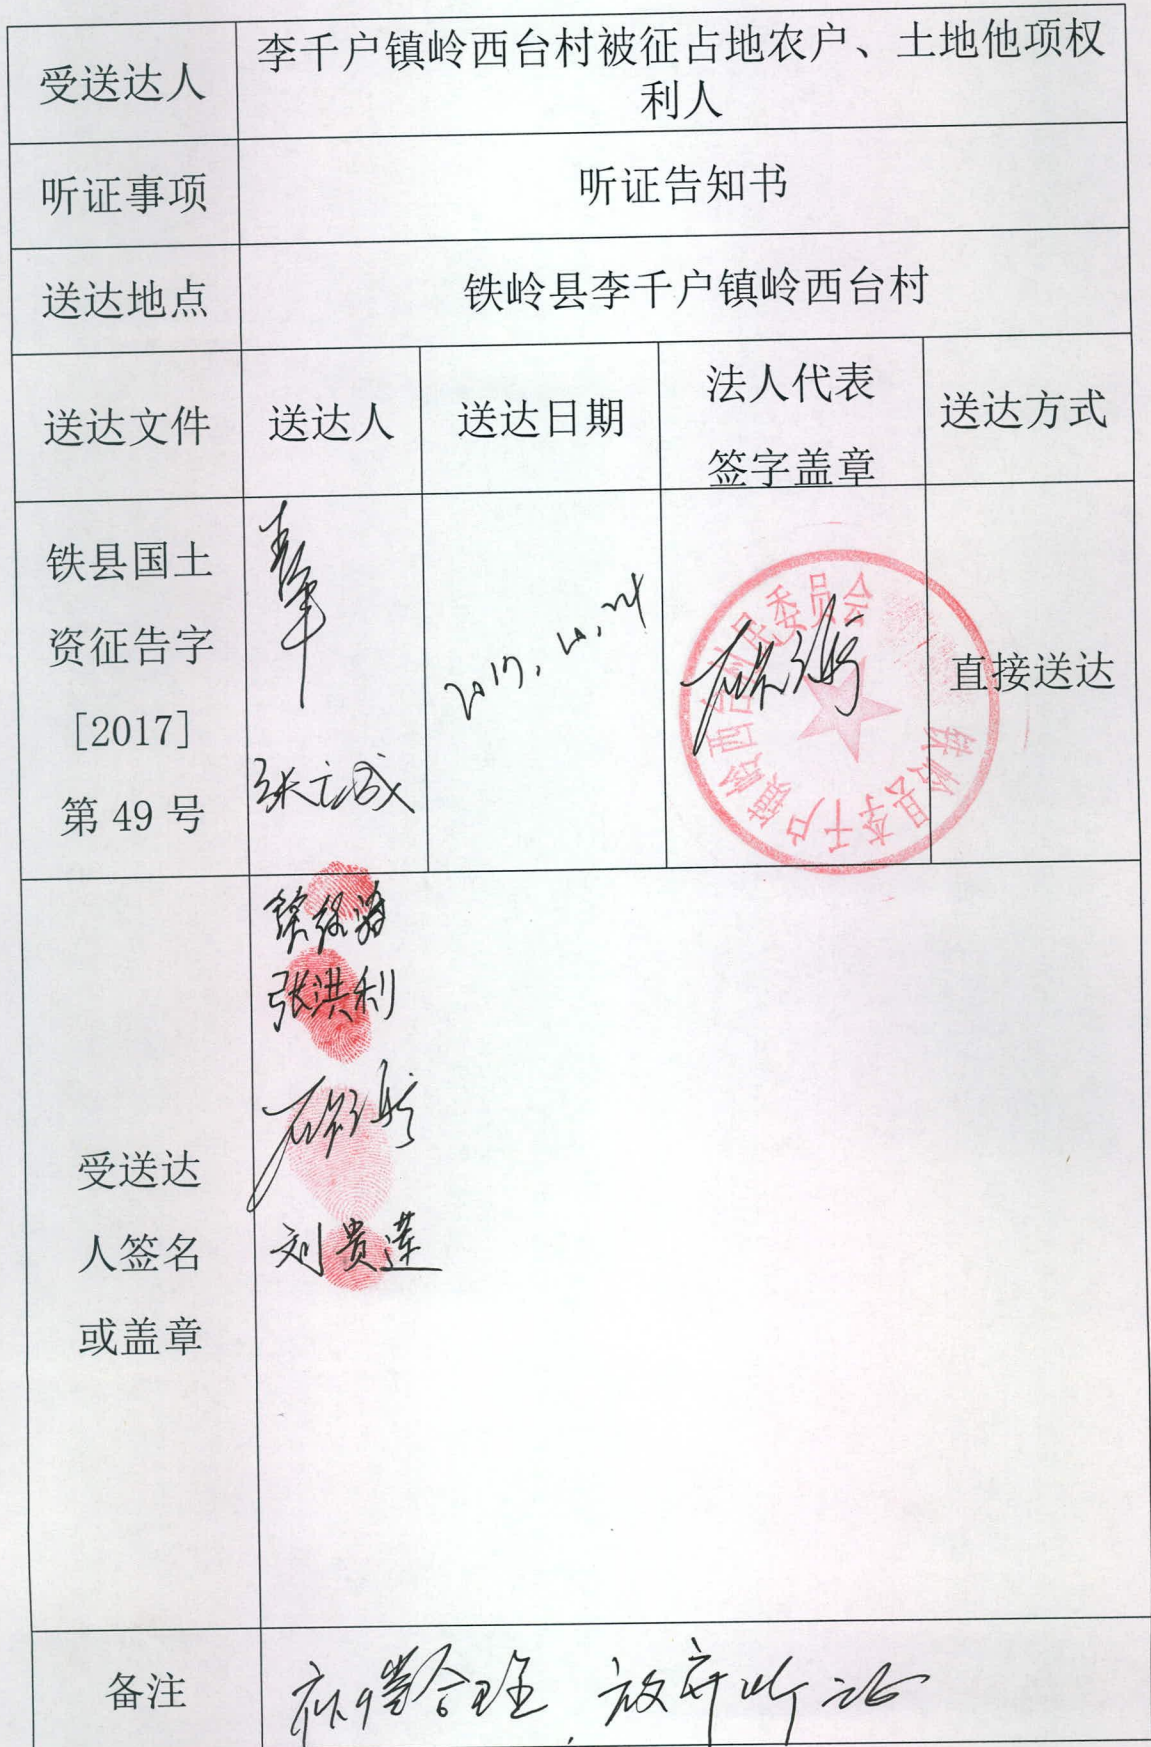 受送达人
李千户镇岭西台村被征占地农户、土地他项权
利人
听证事项
听证告知书
送达地点
铁岭县李千户镇岭西台村
送达文件
送达人
送达日期
法人代表
签字盖章
送达方式
铁县国土
资征告字
[2017]
第 49 号
张
2017,10,24
铁岭县李千户镇岭西台村村民委员会
直接送达
受送达
人签名
或盖章
张洪利
刘贵莲
备注
补偿合理，放弃听证